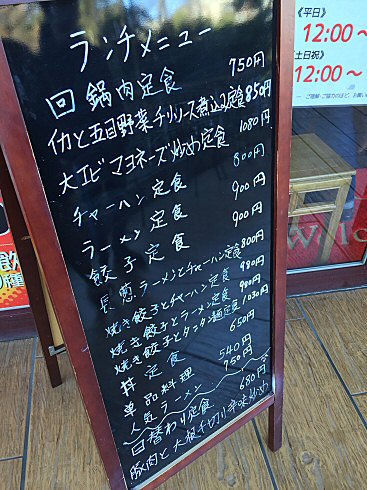 ランチメニュー
回鍋肉定食 750円
イカと五目野菜チリソース煮込み定食 850円
大エビマヨネーズ炒め定食 1080円
チャーハン定食 800円
ラーメン定食 900円
餃子定食 900円
ラーメンとチャーハン定食 800円
焼き餃子とチャーハン定食 980円
焼き餃子とラーメン定食 980円
焼き餃子とタンタン麺定食 1030円
丼定食 650円
単品料理 540円
人気ラーメン 750円
日替わり定食 680円
豚肉と大根千切り辛味炒め
《平日》
12:00~
《土日祝》
12:00~